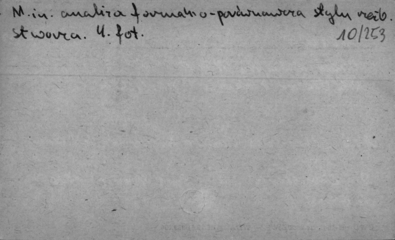 M.in. analiza formalno-porównawcza stylu rzeźb.
stwowra. 4. fot. 10/253